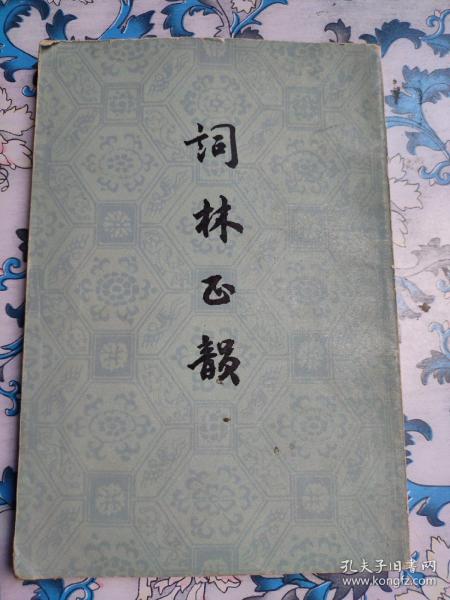 詞林正韻
孔夫子旧书网
www.kongfz.com